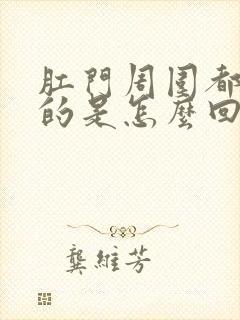 肛門周圍都
的是怎麼回
龔維芳